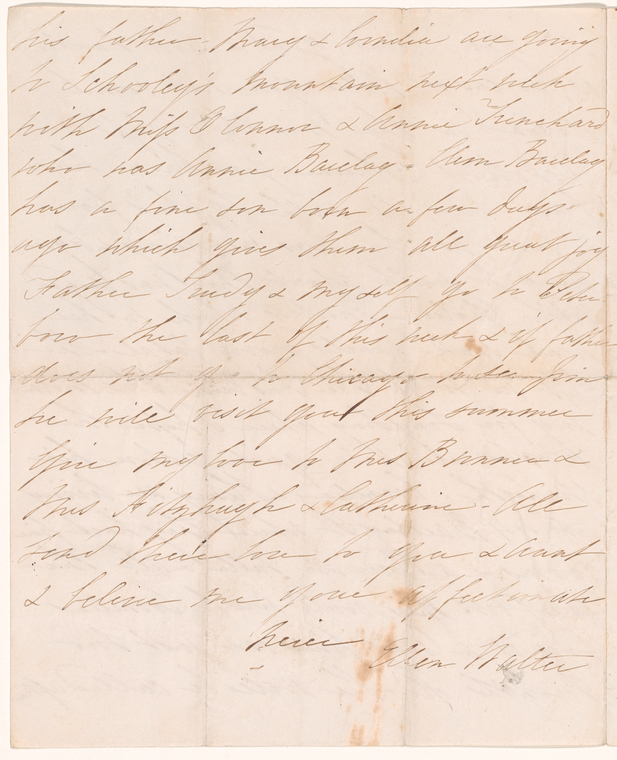 his father. Mary & Cornelia are going
to Schooley's mountain next week
with Miss O'Connor & Annie Trenchard
who was Annie Barclay - Clem Barclay
has a fine son born a few days
ago which gives them all great joy
Father Trudy & myself go to
the last of this week & if father
does not go to Chicago to see Jim
he will visit you this summer
Give my love to Mrs Brunner &
Mrs Fitzhugh & Catherine - All
send their love to you & Aunt
& believe me your affectionate
Neice
Ellen Walter